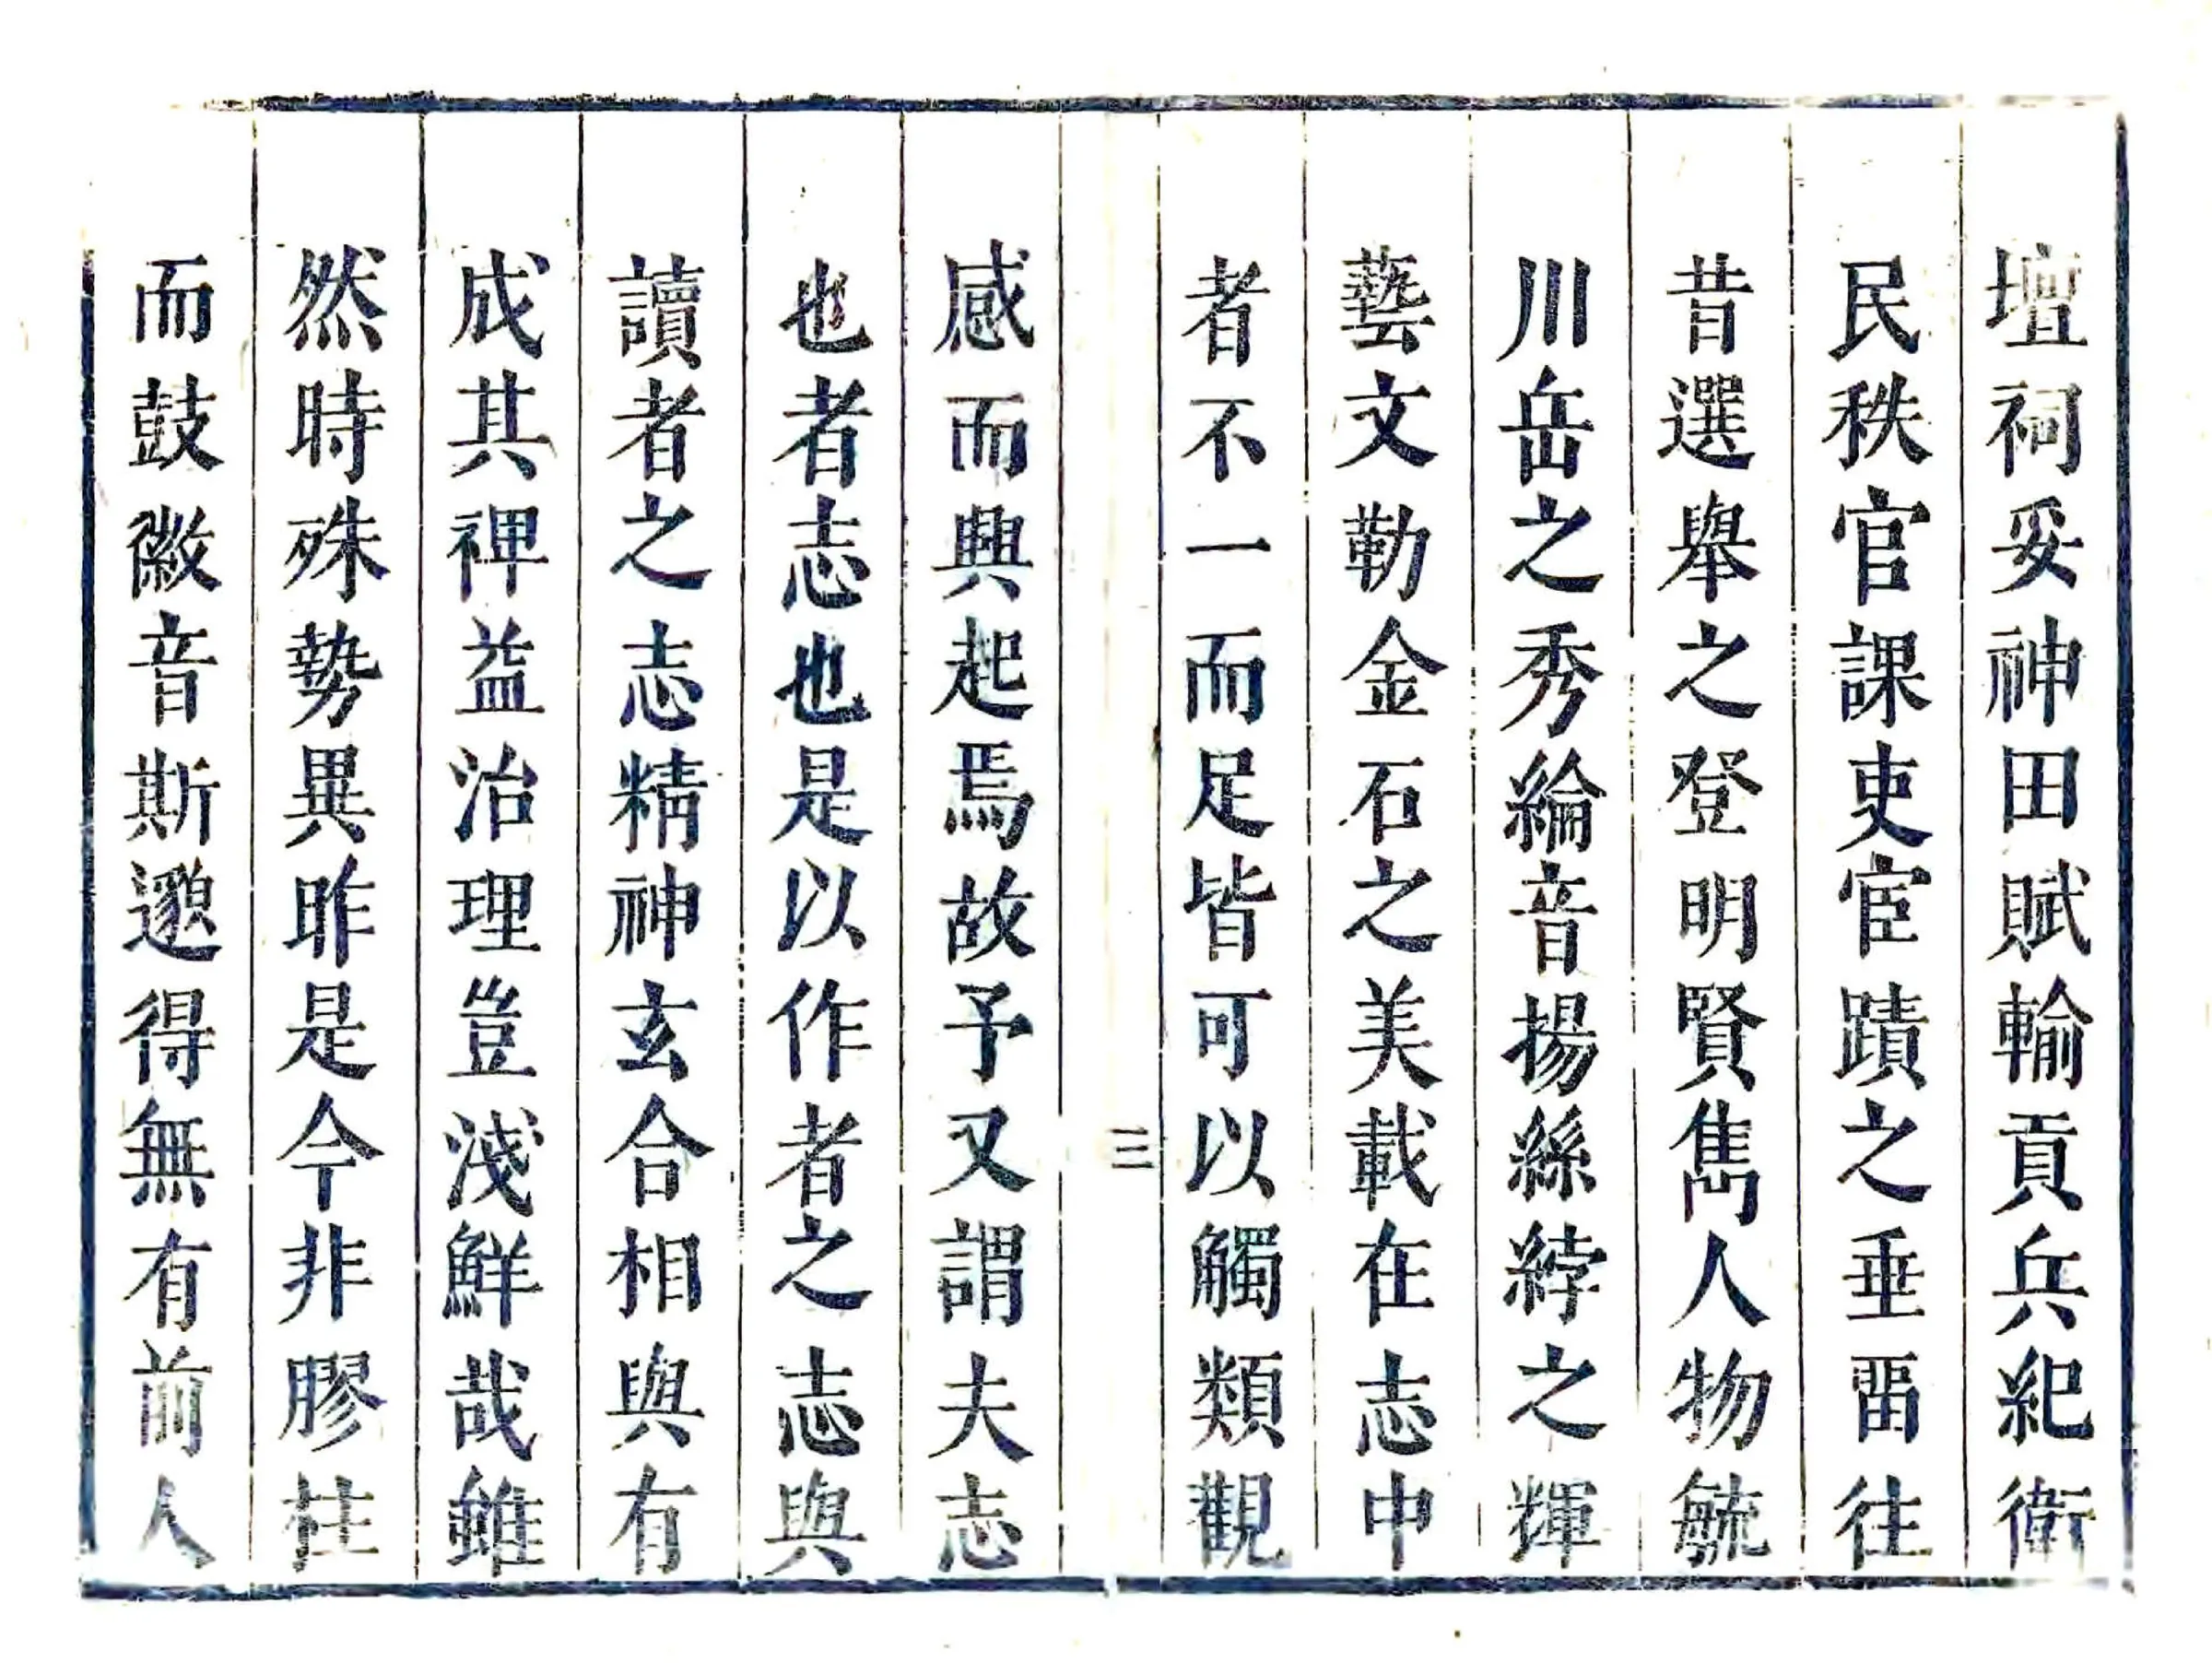 壇祠妥神田賦輸貢兵紀衛
民秩官課吏宦蹟之垂畱往
昔選舉之登明賢雋人物毓
川岳之秀綸音揚絲綍之輝
藝文勒金石之美載在志中
者不一而足皆可以觸類觀
三
感而興起焉故予又謂夫志
也者志也是以作者之志與
讀者之志精神玄合相與有
成其裨益治理豈淺鮮哉雖
然時殊勢異昨是今非膠柱
而鼓徽音斯邈得無有前人